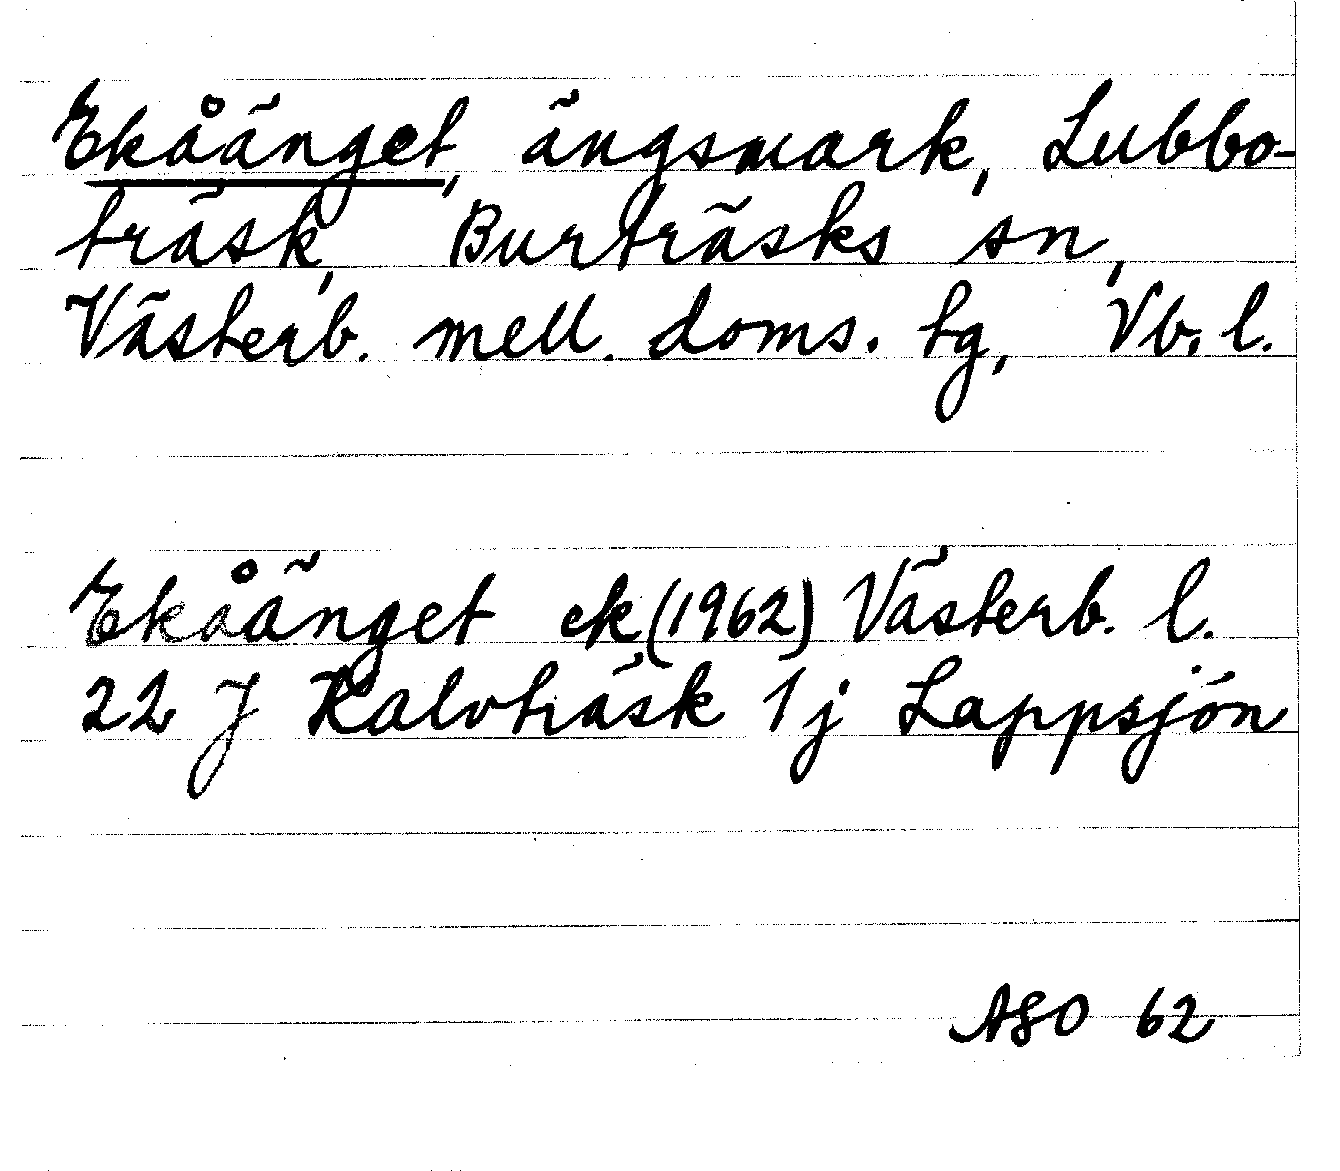 Ekåänget, ängsmark, Lubbo-
träsk, Burträsks sn,
Västerb. mell. doms. tg, Vb. l.
Ekåänget ek (1962) Västerb. l.
22 J Kalvträsk 1j Lappsjön
ASO 62